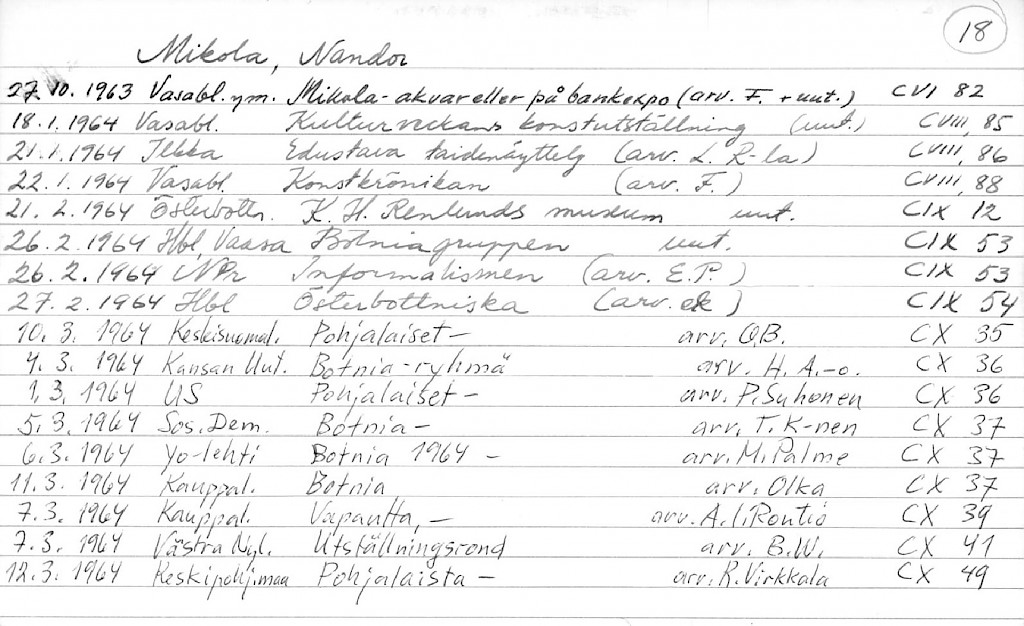 18
Mikola, Nandor
27.10.1963 Vasabl. ym. Mikola-akvareller på bankexpo (arv. F. + uut.) CVI 82
18.1.1964 Vasabl. Kulturveckans konstutställning (uut.) CVIII, 85
21.1.1964 Ilkka Edustava taidenäyttely (arv. L. R-la) CVIII, 86
22.1.1964 Vasabl. Konstkrönikan (arv. F.) CVIII, 88
21.2.1964 Österbottn. K. H. Renlunds museum uut. CIX 12
26.2.1964 Hbl, Vaasa Botniagruppen uut. CIX 53
26.2.1964 NPr Informalismen (arv. E.P.) CIX 53
27.2.1964 Hbl Österbottniska (arv. ek) CIX 54
10.3.1964 Keskisuomal. Pohjalaiset- arv. O.B. CX 35
4.3.1964 Kansan Uut. Botnia-ryhmä arv. H. A.-o. CX 36
1.3.1964 US Pohjalaiset- arv. P. Suhonen CX 36
5.3.1964 Sos. Dem. Botnia- arv. T. K-nen CX 37
6.3.1964 Yo-lehti Botnia 1964 - arv. M. Palme CX 37
11.3.1964 Kauppal. Botnia arv. Olka CX 37
7.3.1964 Kauppal. Vapautta, - arv. A. I. Routio CX 39
7.3.1964 Västra Nyl. Utställningsrond arv. B.W. CX 41
12.3.1964 Keskipohjmaa Pohjalaista - arv. R. Virkkala CX 49